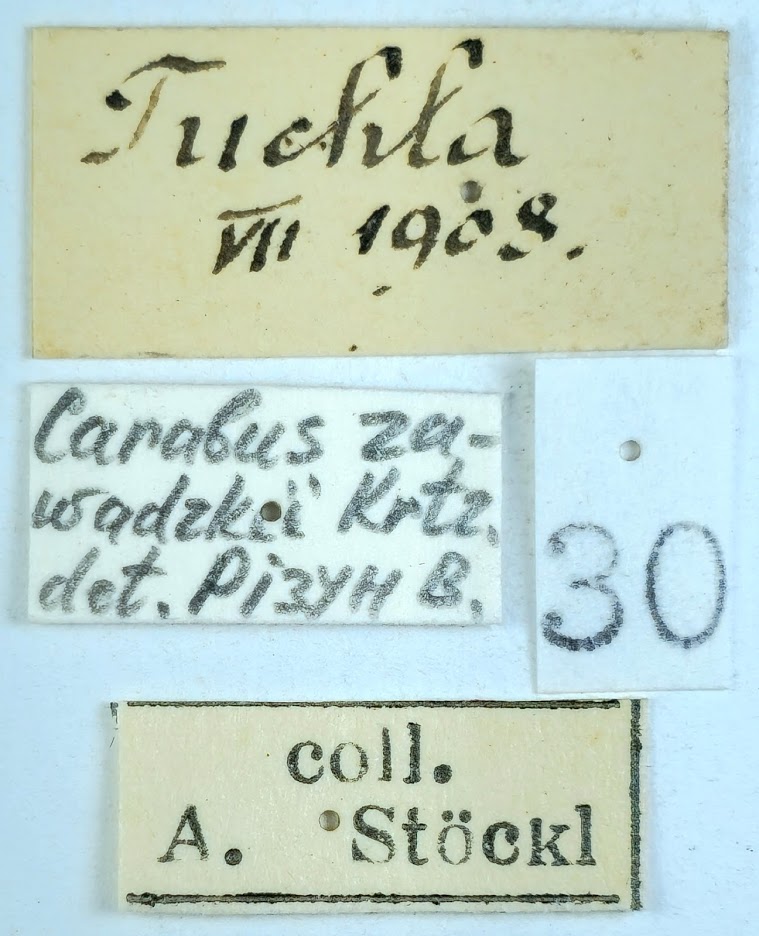 Tuchła
VII 1908.
Carabus za-
wadzkii Krtz.
det. Різун В.
30
coll.
A. Stöckl